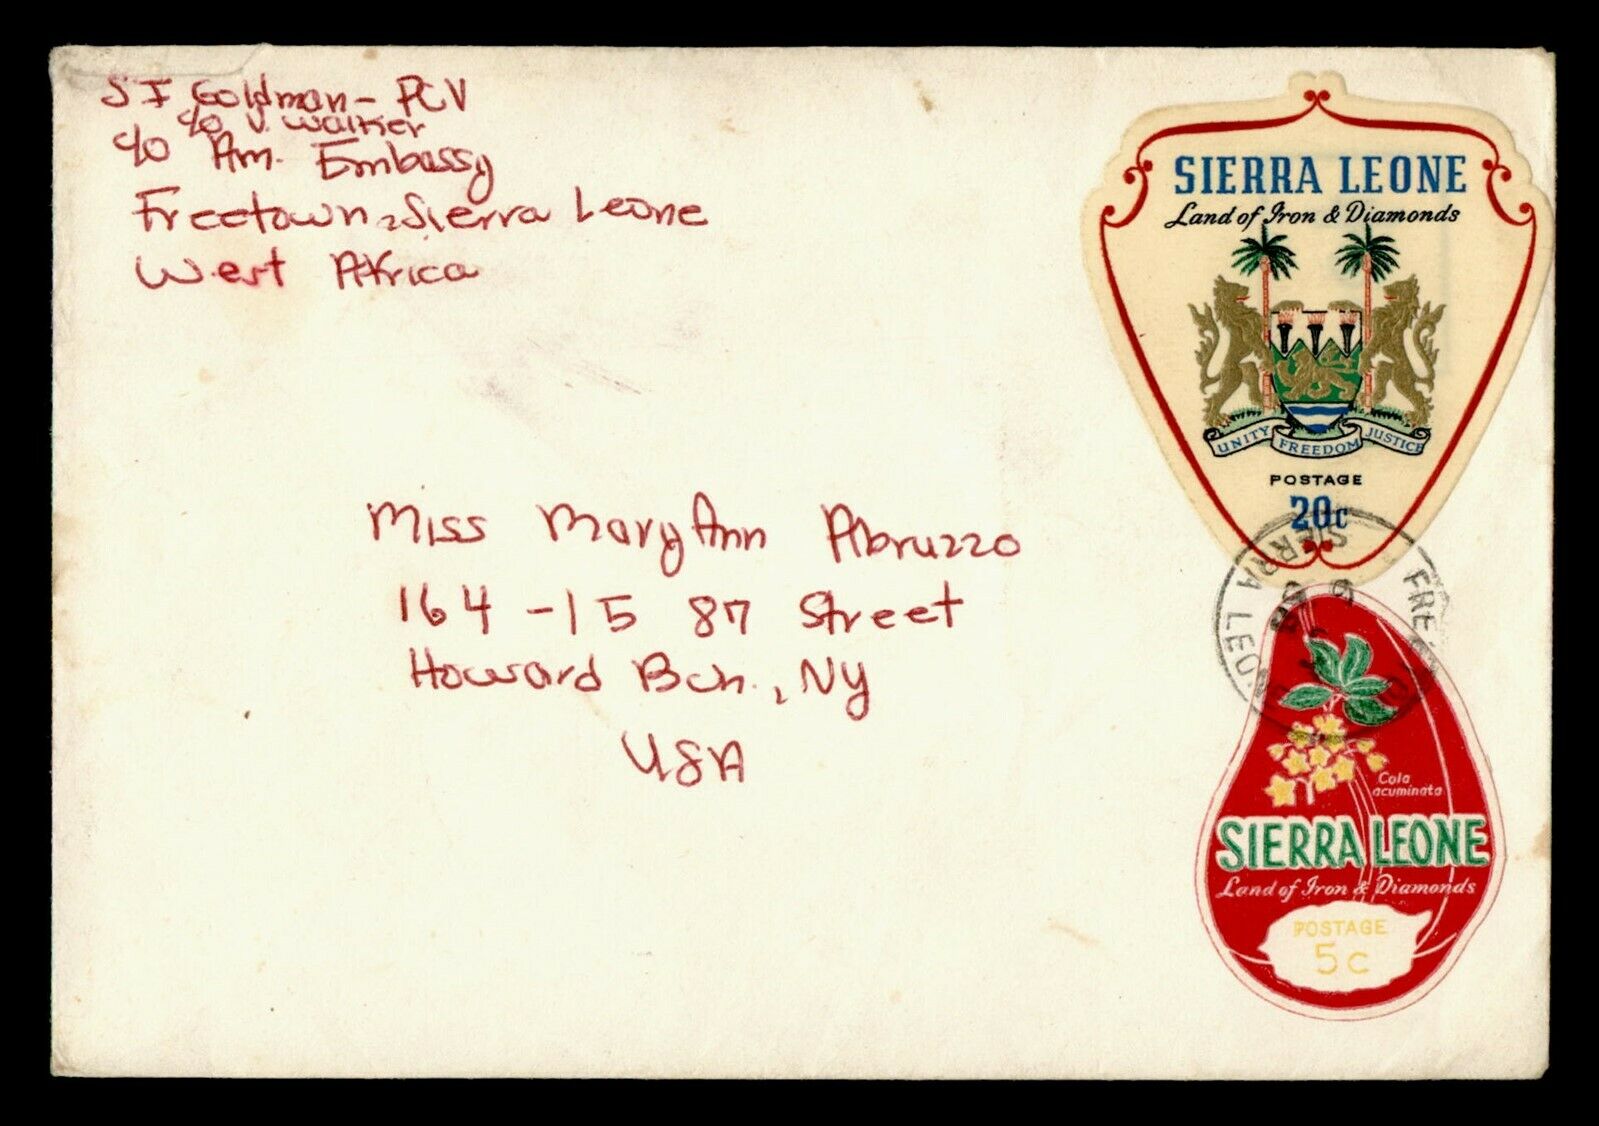 S I Goldman - PCV
c/o V. Walker
c/o Am. Embassy
Freetown, Sierra Leone
West Africa
SIERRA LEONE
Land of Iron & Diamonds
UNITY FREEDOM JUSTICE
POSTAGE
20c
SIERRA LEONE
Miss Mary Ann Abruzzo
164-15 87 Street
Howard Bch., NY
USA
Cola
acuminata
SIERRA LEONE
Land of Iron & Diamonds
POSTAGE
5c